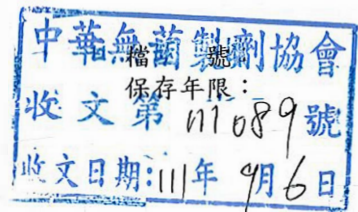 中華無菌製劑協會
檔 號
保存年限：
收文第111089號
收文日期：111年9月6日